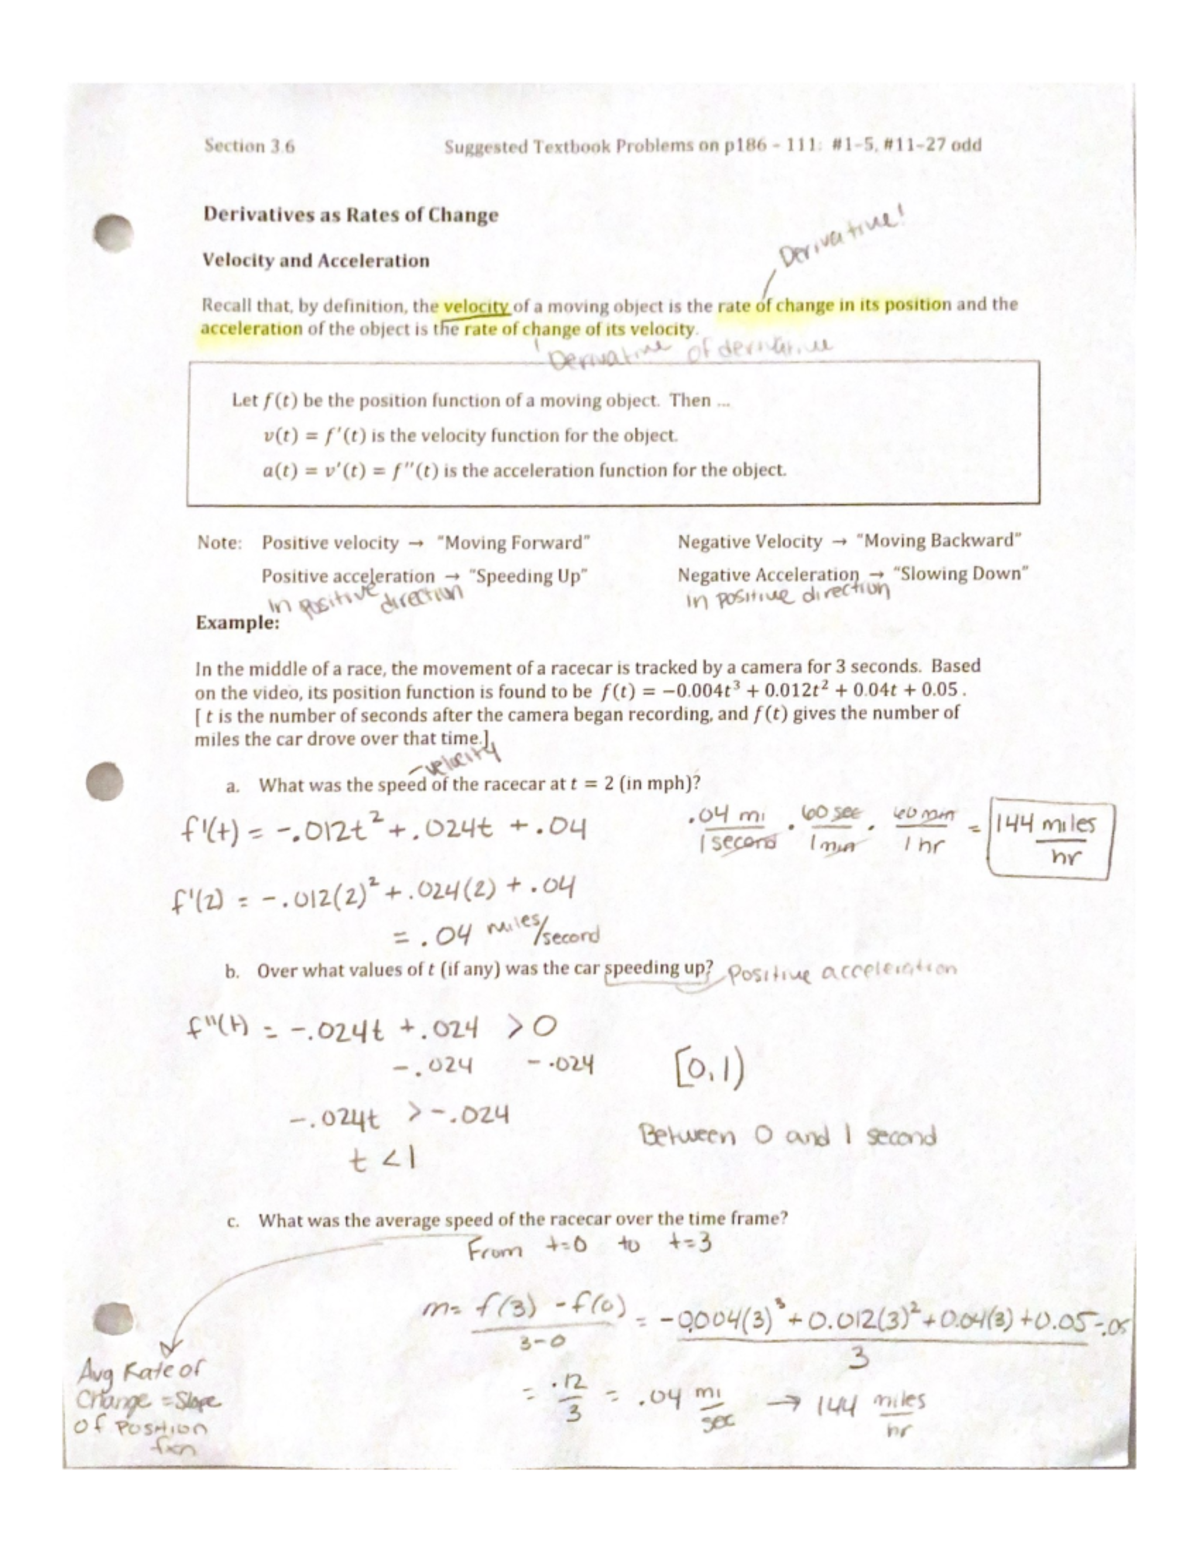 Section 3.6 Suggested Textbook Problems on p186 - 111: #1-5, #11-27 odd
Derivatives as Rates of Change
Derivative!
Velocity and Acceleration
Recall that, by definition, the velocity of a moving object is the rate of change in its position and the
acceleration of the object is the rate of change of its velocity.
Derivative of derivative
Let f(t) be the position function of a moving object. Then ...
v(t) = f'(t) is the velocity function for the object.
a(t) = v'(t) = f''(t) is the acceleration function for the object.
Note: Positive velocity → "Moving Forward" Negative Velocity → "Moving Backward"
Positive acceleration → "Speeding Up" Negative Acceleration → "Slowing Down"
In positive direction In positive direction
Example:
In the middle of a race, the movement of a racecar is tracked by a camera for 3 seconds. Based
on the video, its position function is found to be f(t) = −0.004t³ + 0.012t² + 0.04t + 0.05 .
[ t is the number of seconds after the camera began recording, and f(t) gives the number of
miles the car drove over that time.]
velocity
a. What was the speed of the racecar at t = 2 (in mph)?
f'(t) = -.012t² + .024t + .04
.04 mi / 1 second · 60 sec / 1 min · 60 min / 1 hr = 144 miles / hr
f'(2) = -.012(2)² + .024(2) + .04
= .04 miles/second
b. Over what values of t (if any) was the car speeding up? Positive acceleration
f''(t) = -.024t + .024 > 0
-.024 -.024
[0,1)
-.024t > -.024
Between 0 and 1 second
t < 1
c. What was the average speed of the racecar over the time frame?
From t=0 to t=3
m= f(3) - f(0) / 3-0 = -0.004(3)³ + 0.012(3)² + 0.04(3) + 0.05 -.05 / 3
= .12 / 3 = .04 mi / sec → 144 miles / hr
Avg Rate of
Change = Slope
Of Position
fxn